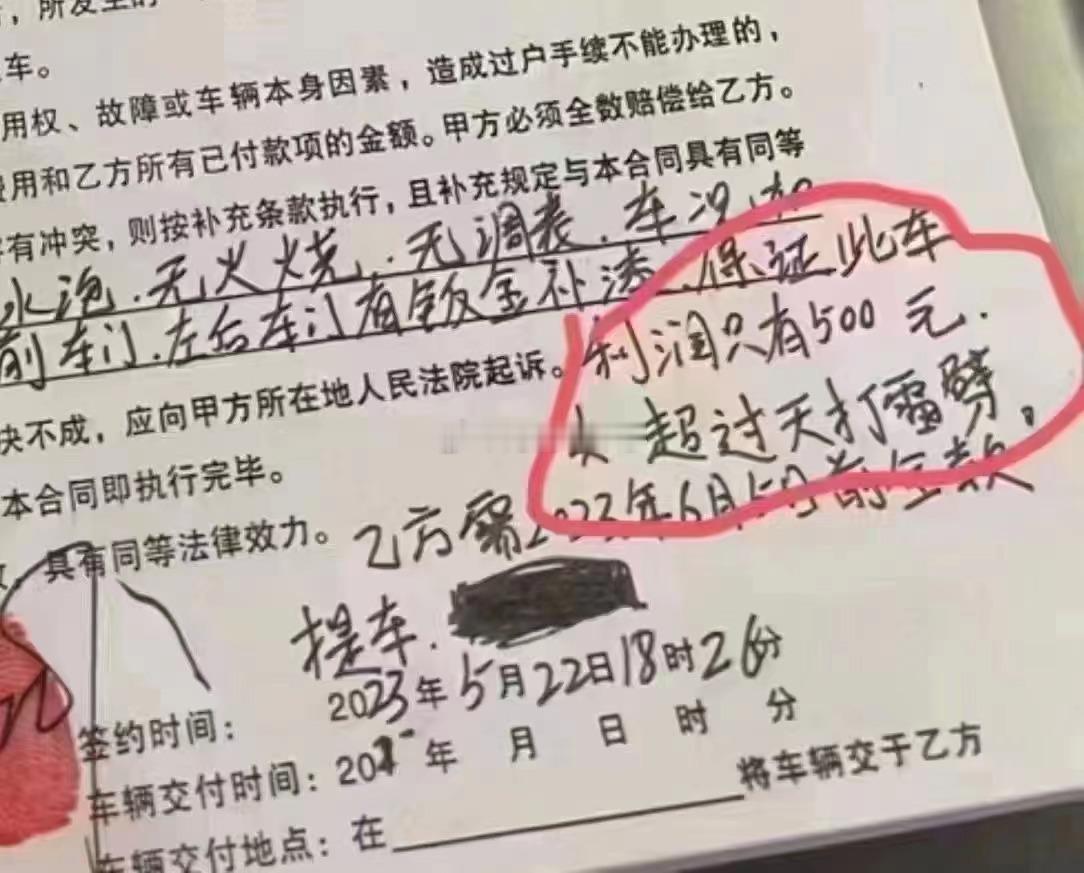 ，所发生的
车。
用权、故障或车辆本身因素，造成过户手续不能办理的，
费用和乙方所有已付款项的金额。甲方必须全数赔偿给乙方。
有冲突，则按补充条款执行，且补充规定与本合同具有同等
水泡.无火烧.无调表.车况.
前车门.左后车门有钣金补漆.保证此车
利润只有500元.
决不成，应向甲方所在地人民法院起诉。
超过天打雷劈。
本合同即执行完毕。
具有同等法律效力。
乙方需2023年6月5日前全款
提车.
签约时间：2023年5月22日18时26分
车辆交付时间：202 年 月 日 时 分
车辆交付地点：在 将车辆交于乙方